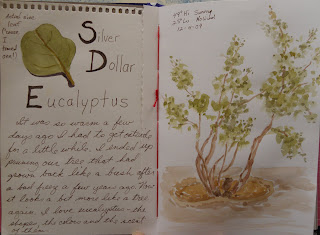 Actual size
leaf
('cause
I
traced
one!)
Silver
Dollar
Eucalyptus
It was so warm a few
days ago I had to get outside
for a little while. I ended up
pruning our tree that had
grown back like a bush after
a bad freeze a few years ago. Now
it looks a bit more like a tree
again. I love eucalyptus - the
shapes, the colors and the scent
of them.
Hi Sunny
Lo